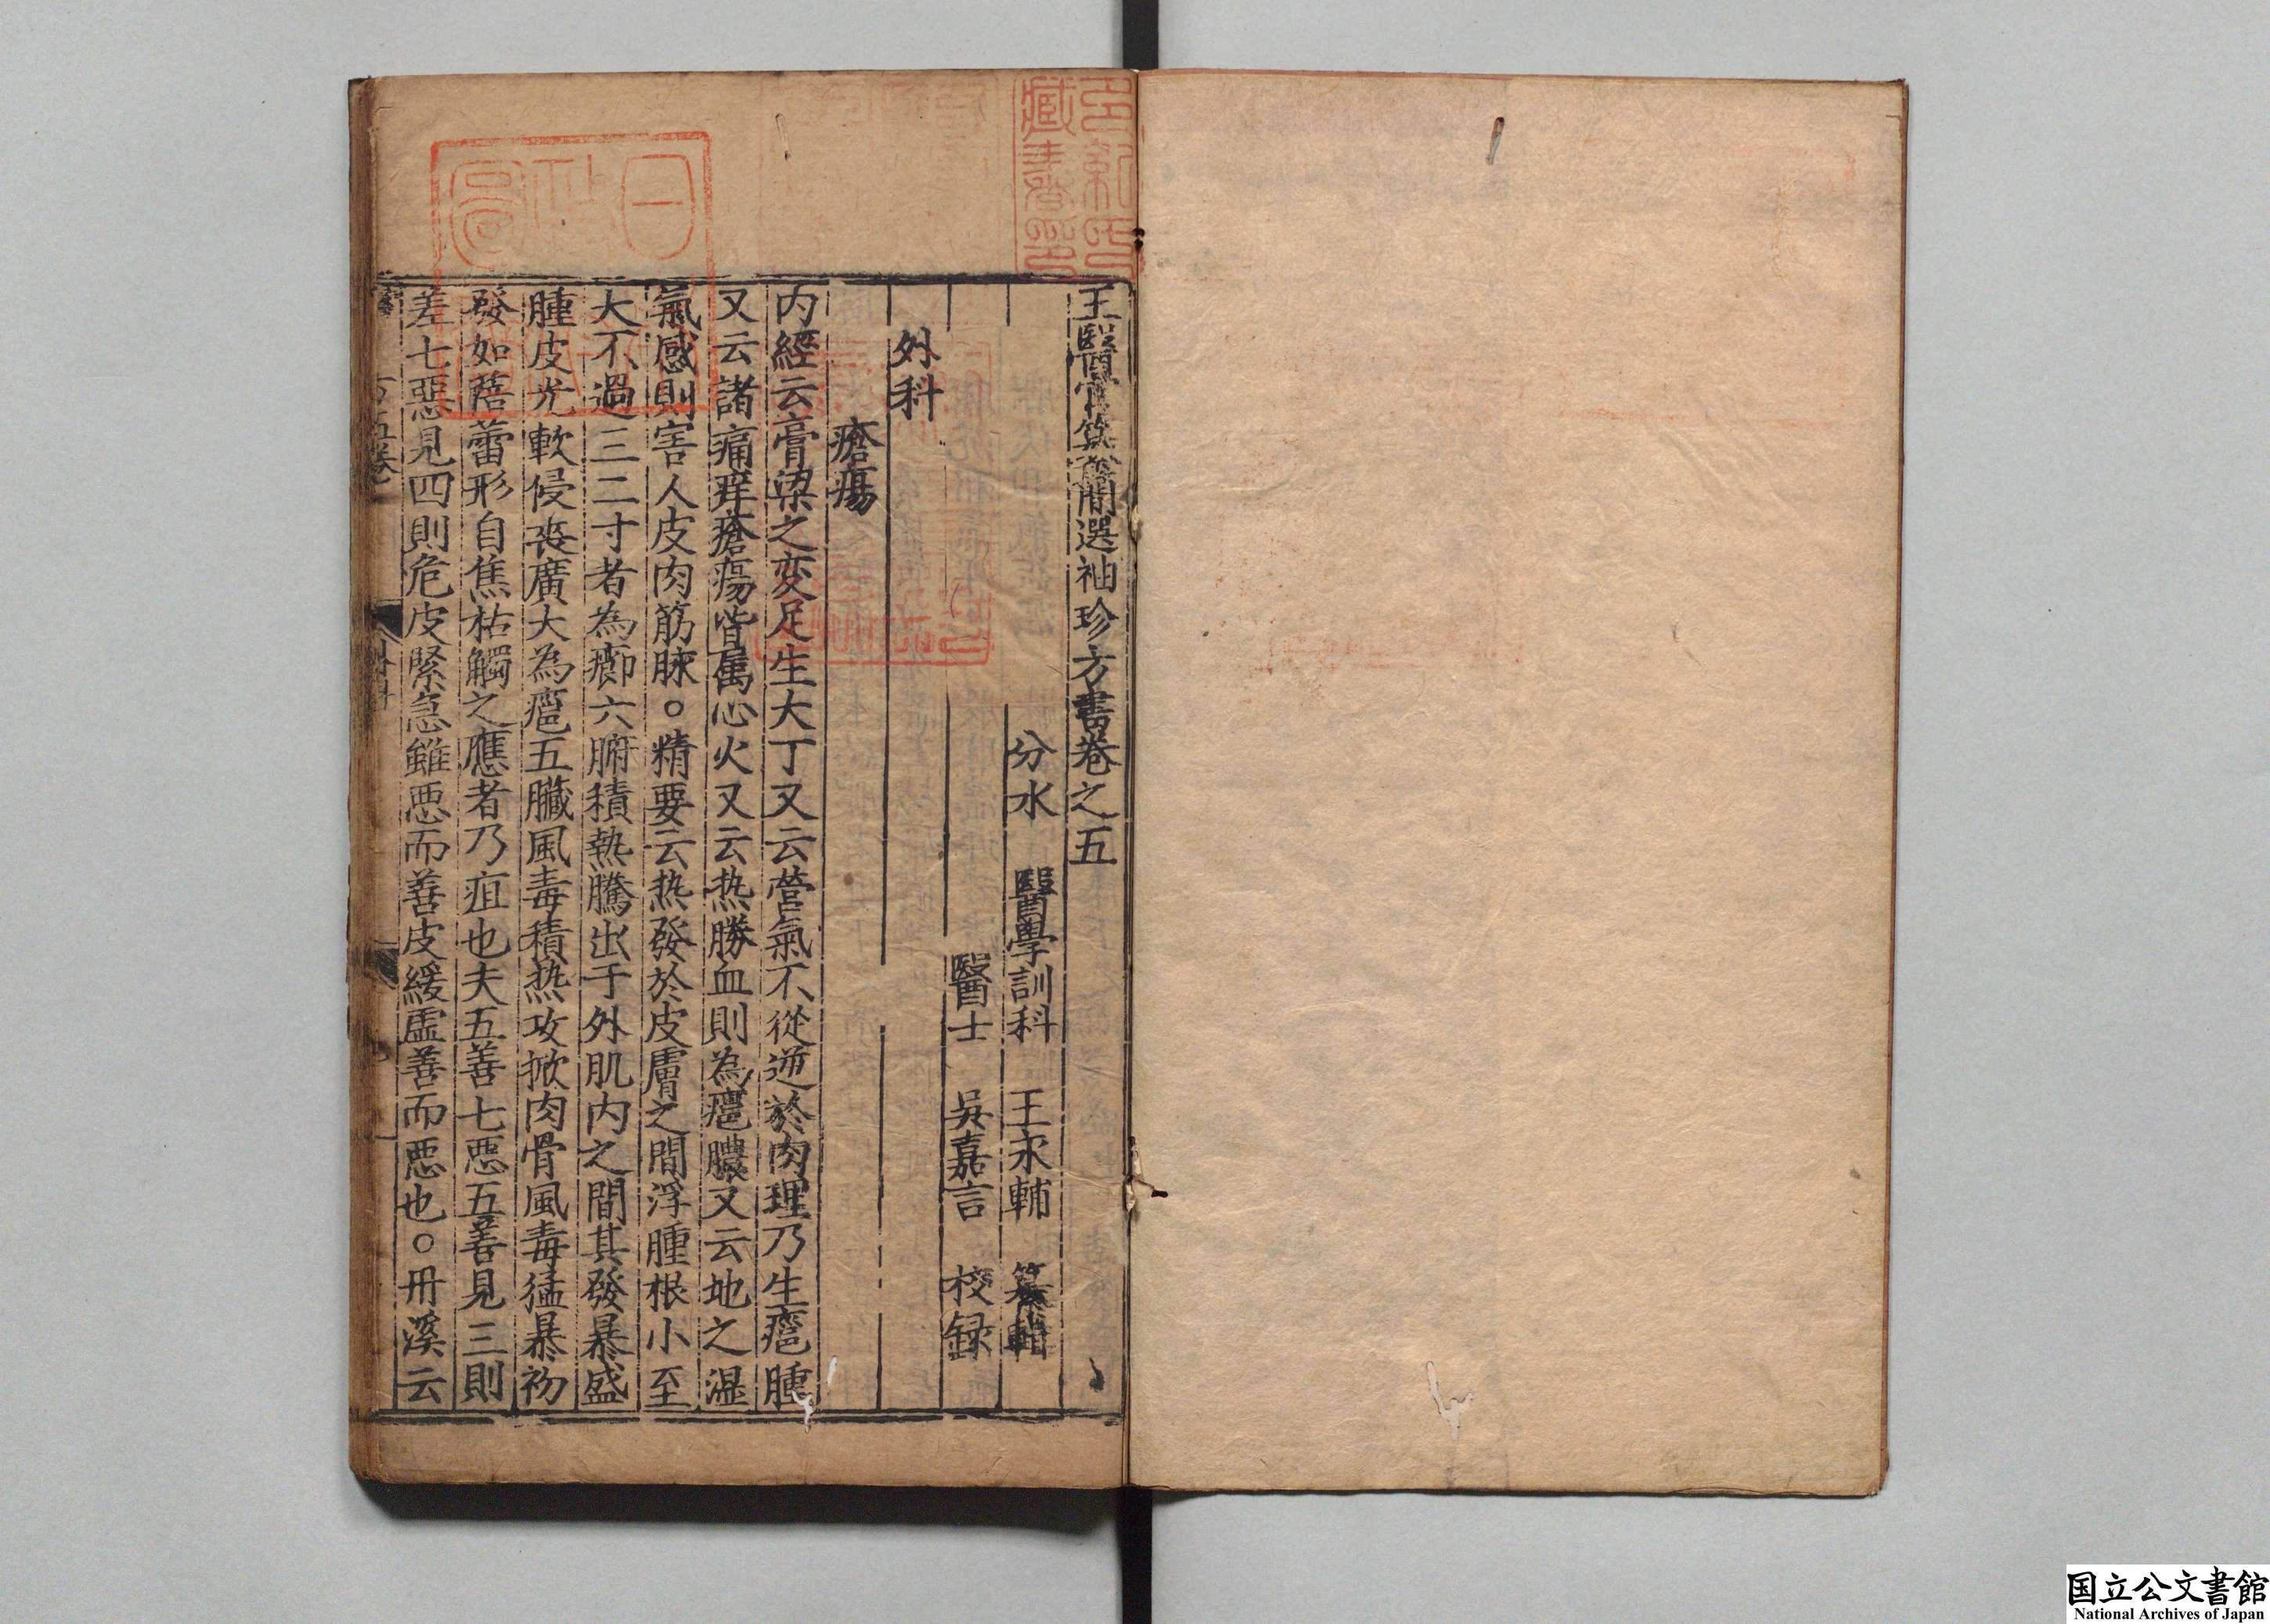 王醫官纂集簡選袖珍方書卷之五
分水　醫學訓科　王永輔　纂輯
醫士　吳嘉言　校録
外科
瘡瘍
内經云膏梁之变足生大丁又云營氣不從逆於肉理乃生癰腫
又云諸痛痒瘡瘍皆属心火又云热勝血則為癰膿又云地之湿
氣感則害人皮肉筋脉○精要云热發於皮膚之間浮腫根小至
大不過三二寸者為癤六腑積熱騰出于外肌肉之間其發暴盛
腫皮光軟侵丧廣大為癰五臓風毒積热攻掀肉骨風毒猛暴初
發如蓓蕾形自焦枯觸之應者乃疽也夫五善七惡五善見三則
差七惡見四則危皮緊急雖悪而善皮緩虚善而悪也○丹溪云
外科
国立公文書館
National Archives of Japan